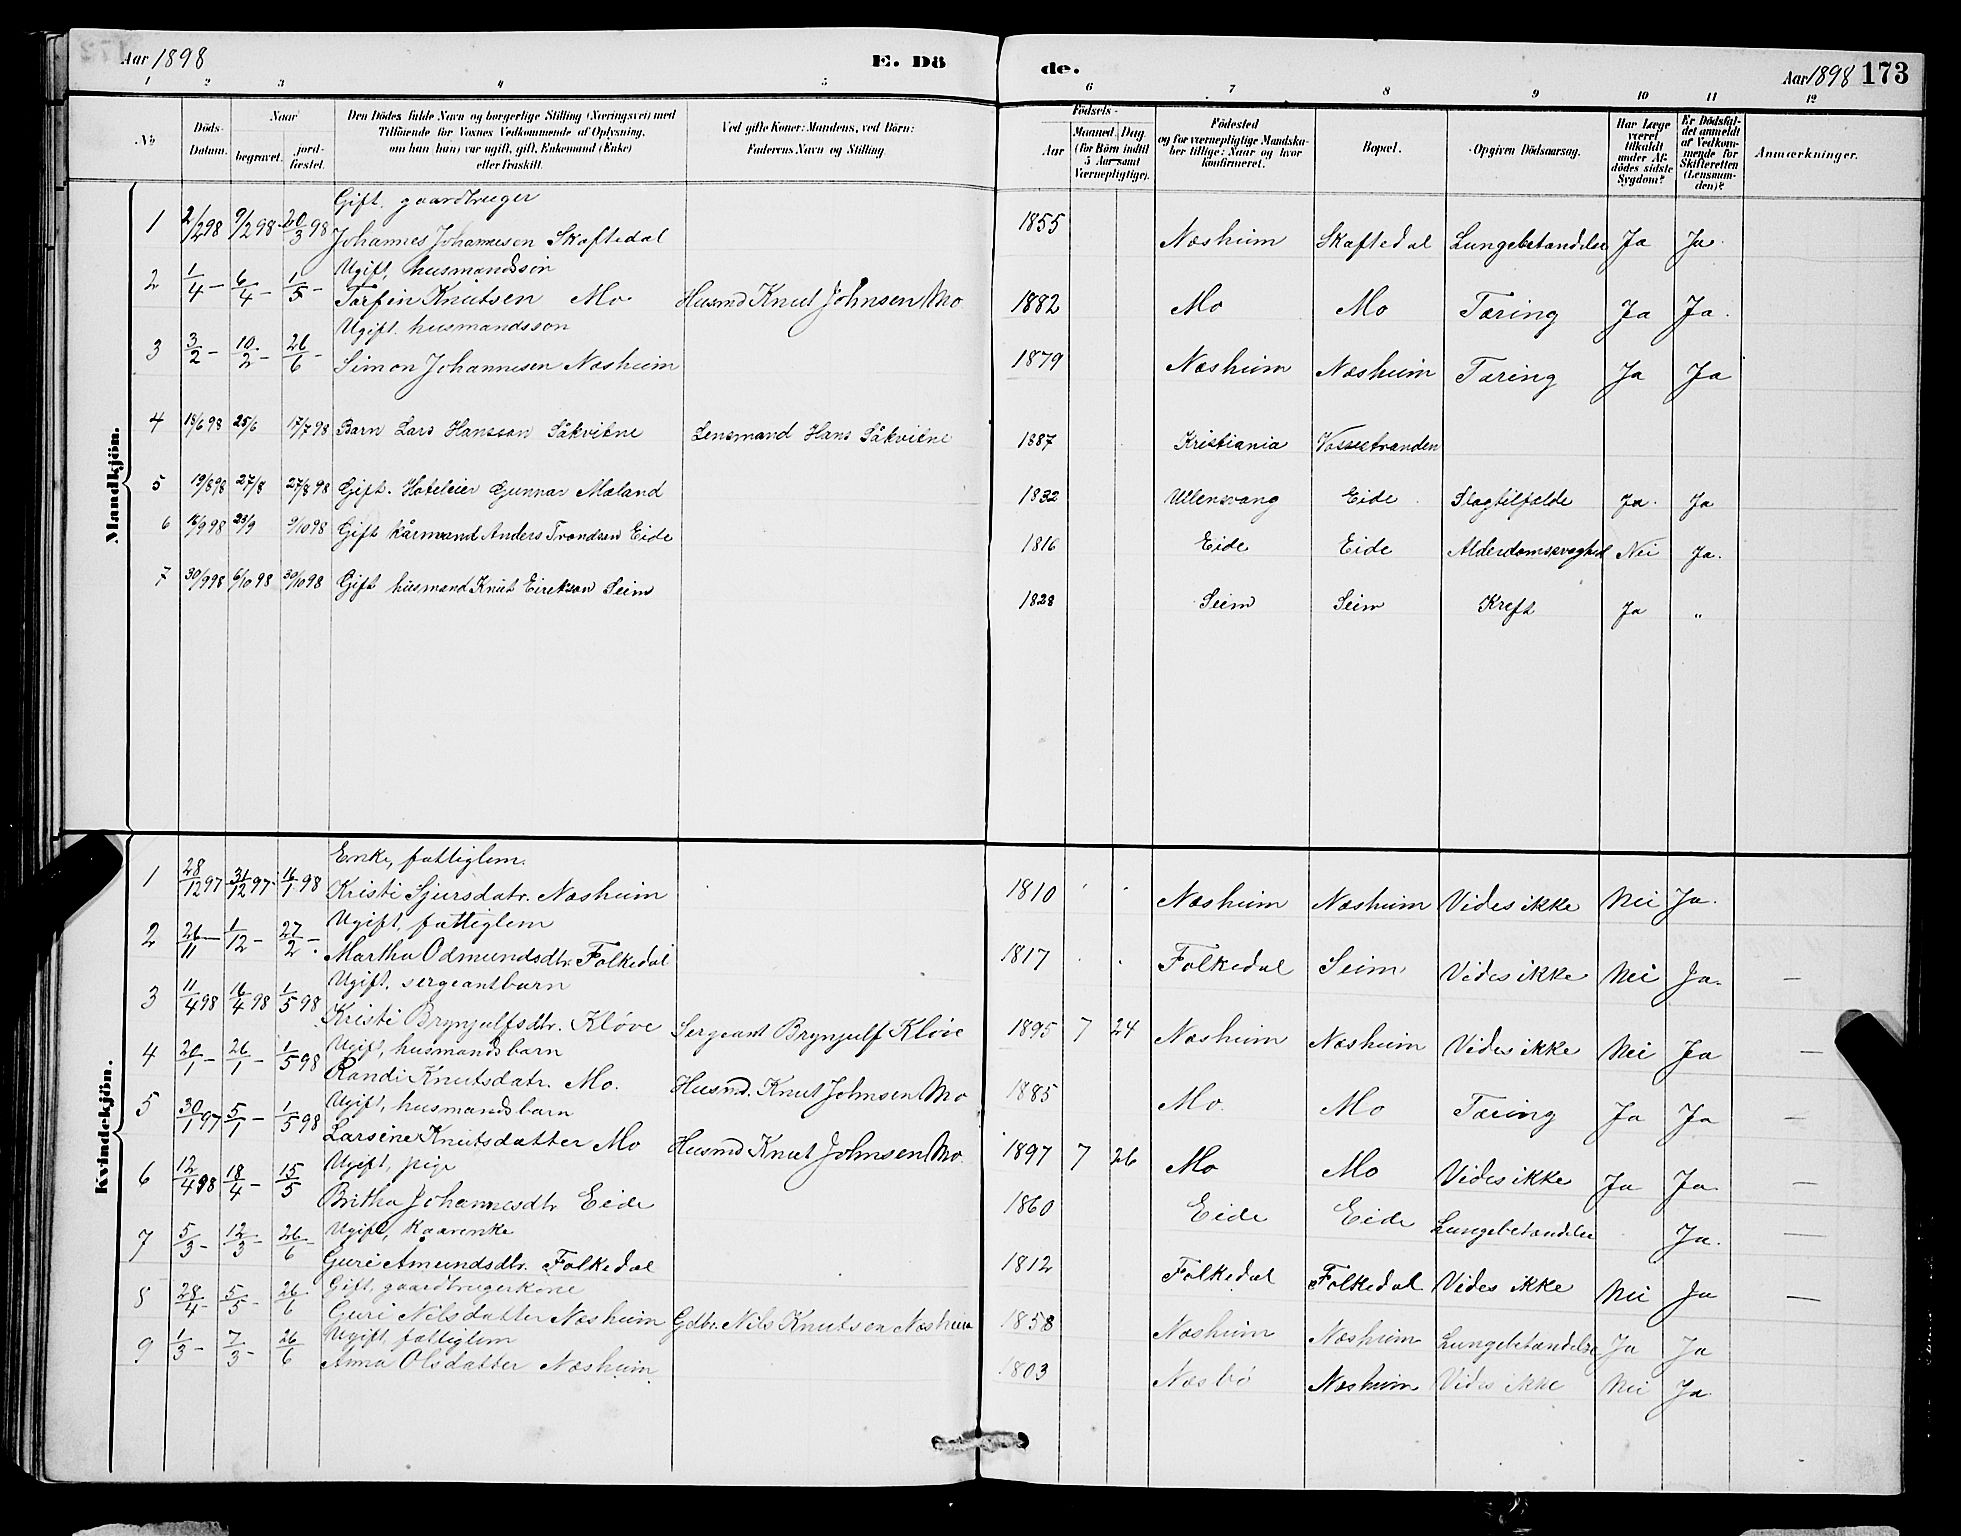 Aar 1898
E. Dö
de.
Aar 1898 173
1 2 3 4 5 6 7 8 9 10 11 12
No
Döds-Datum.
Naar
begravet.
jord-fæstet.
Den Dödes fulde Navn og borgerlige Stilling (Næringsvei) med
Tilföiende for Voxnes Vedkommende af Oplysning,
om han (hun) var ugift, gift, Enkemand (Enke)
eller fraskilt.
Ved gifte Koner: Mandens, ved Börn:
Faderens Navn og Stilling.
Födsels-
Aar
Maaned. Dag.
(for Börn indtil
5 Aar samt
Værnepligtige).
Födested
og for værnepligtige Mandska-
ber tillige: Naar og hvor
konfirmeret.
Bopæl.
Opgiven Dödsaarsag.
Har Læge
været
tilkaldt
under Af-
dödes sidste
Sygdom?
Er Dödsfal-
det anmeldt
af Vedkom-
mende for
Skifteretten
(Lensman-
den)?
Anmærkninger.
Mandkjön.
Gift, gaardbruger
1 2/2 98 9/2 98 20/3 98 Johannes Johannesen Skaftedal 1855 Næsheim Skaftedal Lungebetændelse Ja Ja.
Ugift, husmandssön
2 1/4 - 6/4 - 1/5 - Torfin Knutsen Mo Husmd Knut Johnsen Mo 1882 Mo Mo Tæring Ja Ja.
Ugift. husmandssön
3 3/2 - 10/2 - 26/6 - Simon Johannesen Næsheim 1879 Næsheim Næsheim Tæring Ja Ja
4 18/6 98 25/6 17/7 98 Barn Lars Hansson Såkvitne Lensmand Hans Såkvitne 1887 Kristiania Vossestranden
5 19/8 98 27/8 27/8 98 Gift. Hoteleier Gunnar Mæland 1832 Ullensvang Eide Slagtilfælde Ja. Ja
6 16/9 98 23/9 9/10 98 Gift kårmand Anders Trondsen Eide 1816 Eide Eide Alderdomssvaghed Nei Ja.
7 30/9 98 6/10 98 30/10 98 Gift husmand Knut Eirikson Seim 1828 Seim Seim Kreft Ja "
Kvindekjön.
Enke, fattiglem.
1 28/12 97 31/12 97 16/1 98 Kristi Sjursdatr. Næsheim 1810 Næsheim Næsheim Vides ikke Nei Ja.
Ugift, fattiglem
2 26/11 - 1/12 - 27/2 - Martha Odmundsdtr. Folkedal 1817 Folkedal Seim Vides ikke Nei Ja. —
Ugift, sergeantbarn
3 11/4 98 16/4 98 1/5 98 Kristi Brynjulfsdtr. Kløve Sergeant Brynjulf Kløve 1895 7 24 Næsheim Næsheim Vides ikke Nei Ja —
Ugift, husmandsbarn
4 20/1 - 26/1 - 1/5 98 Randi Knutsdatr. Mo. Husmd. Knut Johnsen Mo 1885 Mo. Mo Tæring Ja Ja —
Ugift, husmandsbarn
5 30/1 97 5/1 - 1/5 98 Larsine Knutsdatter Mo Husmd Knut Johnsen Mo. 1897 7 26 Mo Mo Vides ikke Ja Ja —
Ugift, pige
6 12/4 98 18/4 - 15/5 Britha Johannesdtr Eide 1860 Eide Eide Lungebetændelse Ja. —
Ugift, kaarenke
7 5/3 - 12/3 - 26/6 Guri Amundsdtr. Folkedal 1812 Folkedal Folkedal Vides ikke Nei Ja —
Gift, gaardbrugerkone
8 28/4 - 5/5 - 26/6 Guri Nilsdatter Næsheim Gdbr. Nils Knutsen Næsheim 1858 Næsheim Næsheim Lungebetændelse Ja Ja
Ugift, fattiglem
9 1/3 - 7/3 - 26/6 Anna Olsdatter Næsheim. 1803 Næsbö Næsheim Vides ikke Nei Ja.